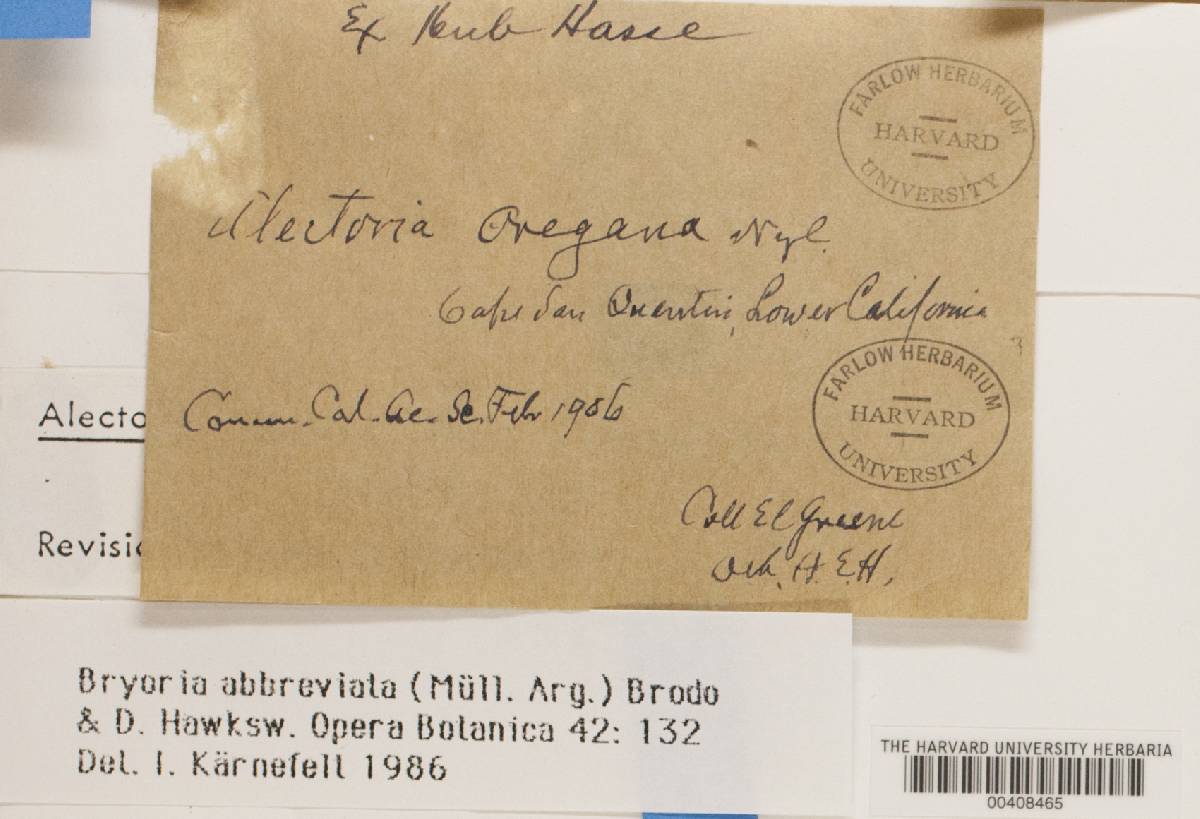 Ex Herb Hasse
FARLOW HERBARIUM
HARVARD
UNIVERSITY
Alectoria oregana Nyl.
Cape San Quentin, Lower California
FARLOW HERBARIUM
HARVARD
UNIVERSITY
Alecto
Comm. Cal. Ac. Sc. Febr 1906
Coll E L Greene
H. E. H.
Revisi
Bryoria abbreviata (Müll. Arg.) Brodo
& D. Hawksw. Opera Botanica 42: 132
Det. I. Kärnefelt 1986
THE HARVARD UNIVERSITY HERBARIA
00408465